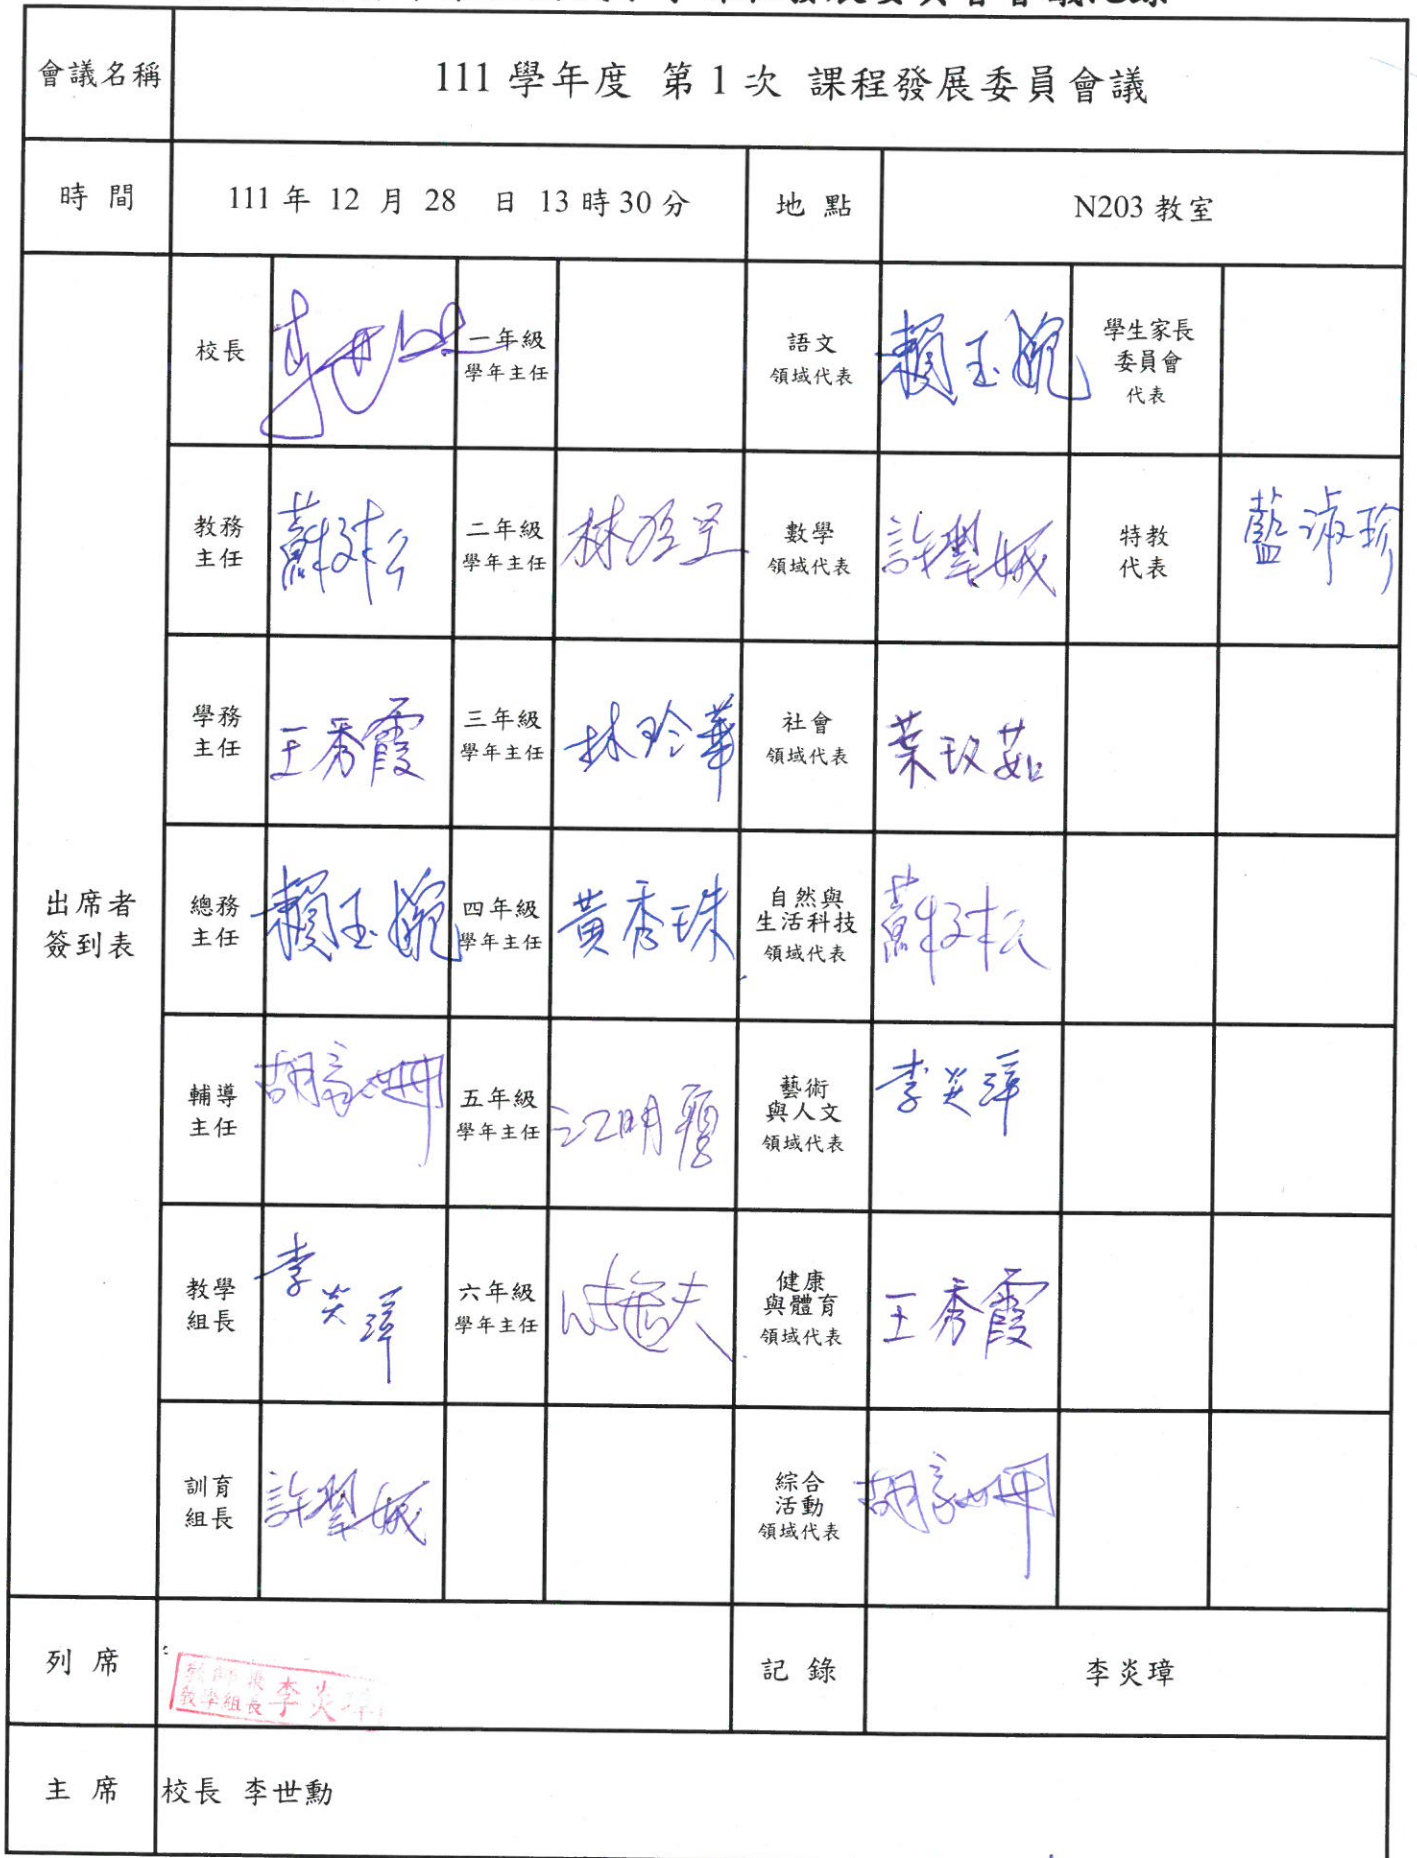 發展委員會會議紀錄
會議名稱
111 學年度 第 1 次 課程發展委員會議
時 間
111 年 12 月 28 日 13 時 30 分
地 點
N203 教室
出席者
簽到表
校長
一年級
學年主任
語文
領域代表
賴玉婉
學生家長
委員會
代表
教務
主任
二年級
學年主任
數學
領域代表
許翠娥
特教
代表
藍淑珍
學務
主任
王秀霞
三年級
學年主任
林玲華
社會
領域代表
葉玟茹
總務
主任
賴玉婉
四年級
學年主任
黃秀珠
自然與
生活科技
領域代表
輔導
主任
五年級
學年主任
藝術
與人文
領域代表
李炎璋
教學
組長
李炎璋
六年級
學年主任
健康
與體育
領域代表
王秀霞
訓育
組長
許翠娥
綜合
活動
領域代表
列 席
教師兼
教學組長 李炎璋
記 錄
李炎璋
主 席
校長 李世勳